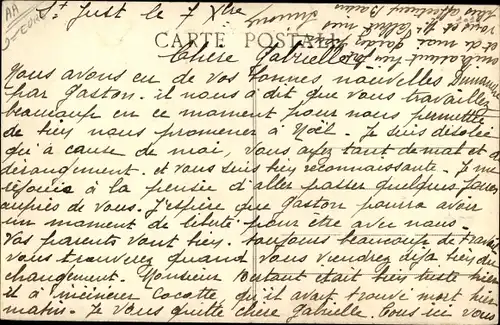 St Just le 7 Xbre
CARTE POSTALE
Chère Gabrielle
Nous avons eu de vos bonnes nouvelles Dimanche
par Gaston. il nous à dit que vous travaillez
beaucoup en ce moment pour nous permettre
de bien nous promener à Noël. Je suis désolée
qu'à cause de moi, vous ayez tant de mal et de
dérangement. et vous suis bien reconnaissante. Je me
réjouie à la pensée d'aller passer quelques jours
auprès de vous. J'espère que Gaston pourra avoir
un moment de liberté pour être avec nous.
Vos parents vont bien. toujours beaucoup de travail
vous trouverez quand vous viendrez déjà bien du
changement. Monsieur Bertaut était bien triste hier
il à Cocotte qu'il avait trouvé mort hier
matin. Je vous quitte chère Gabrielle. Tous ici vous